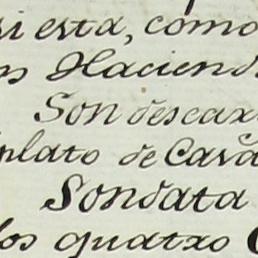 si esta, como
en Haciend
Son descar
plato de Cava
Sondata
los quatro